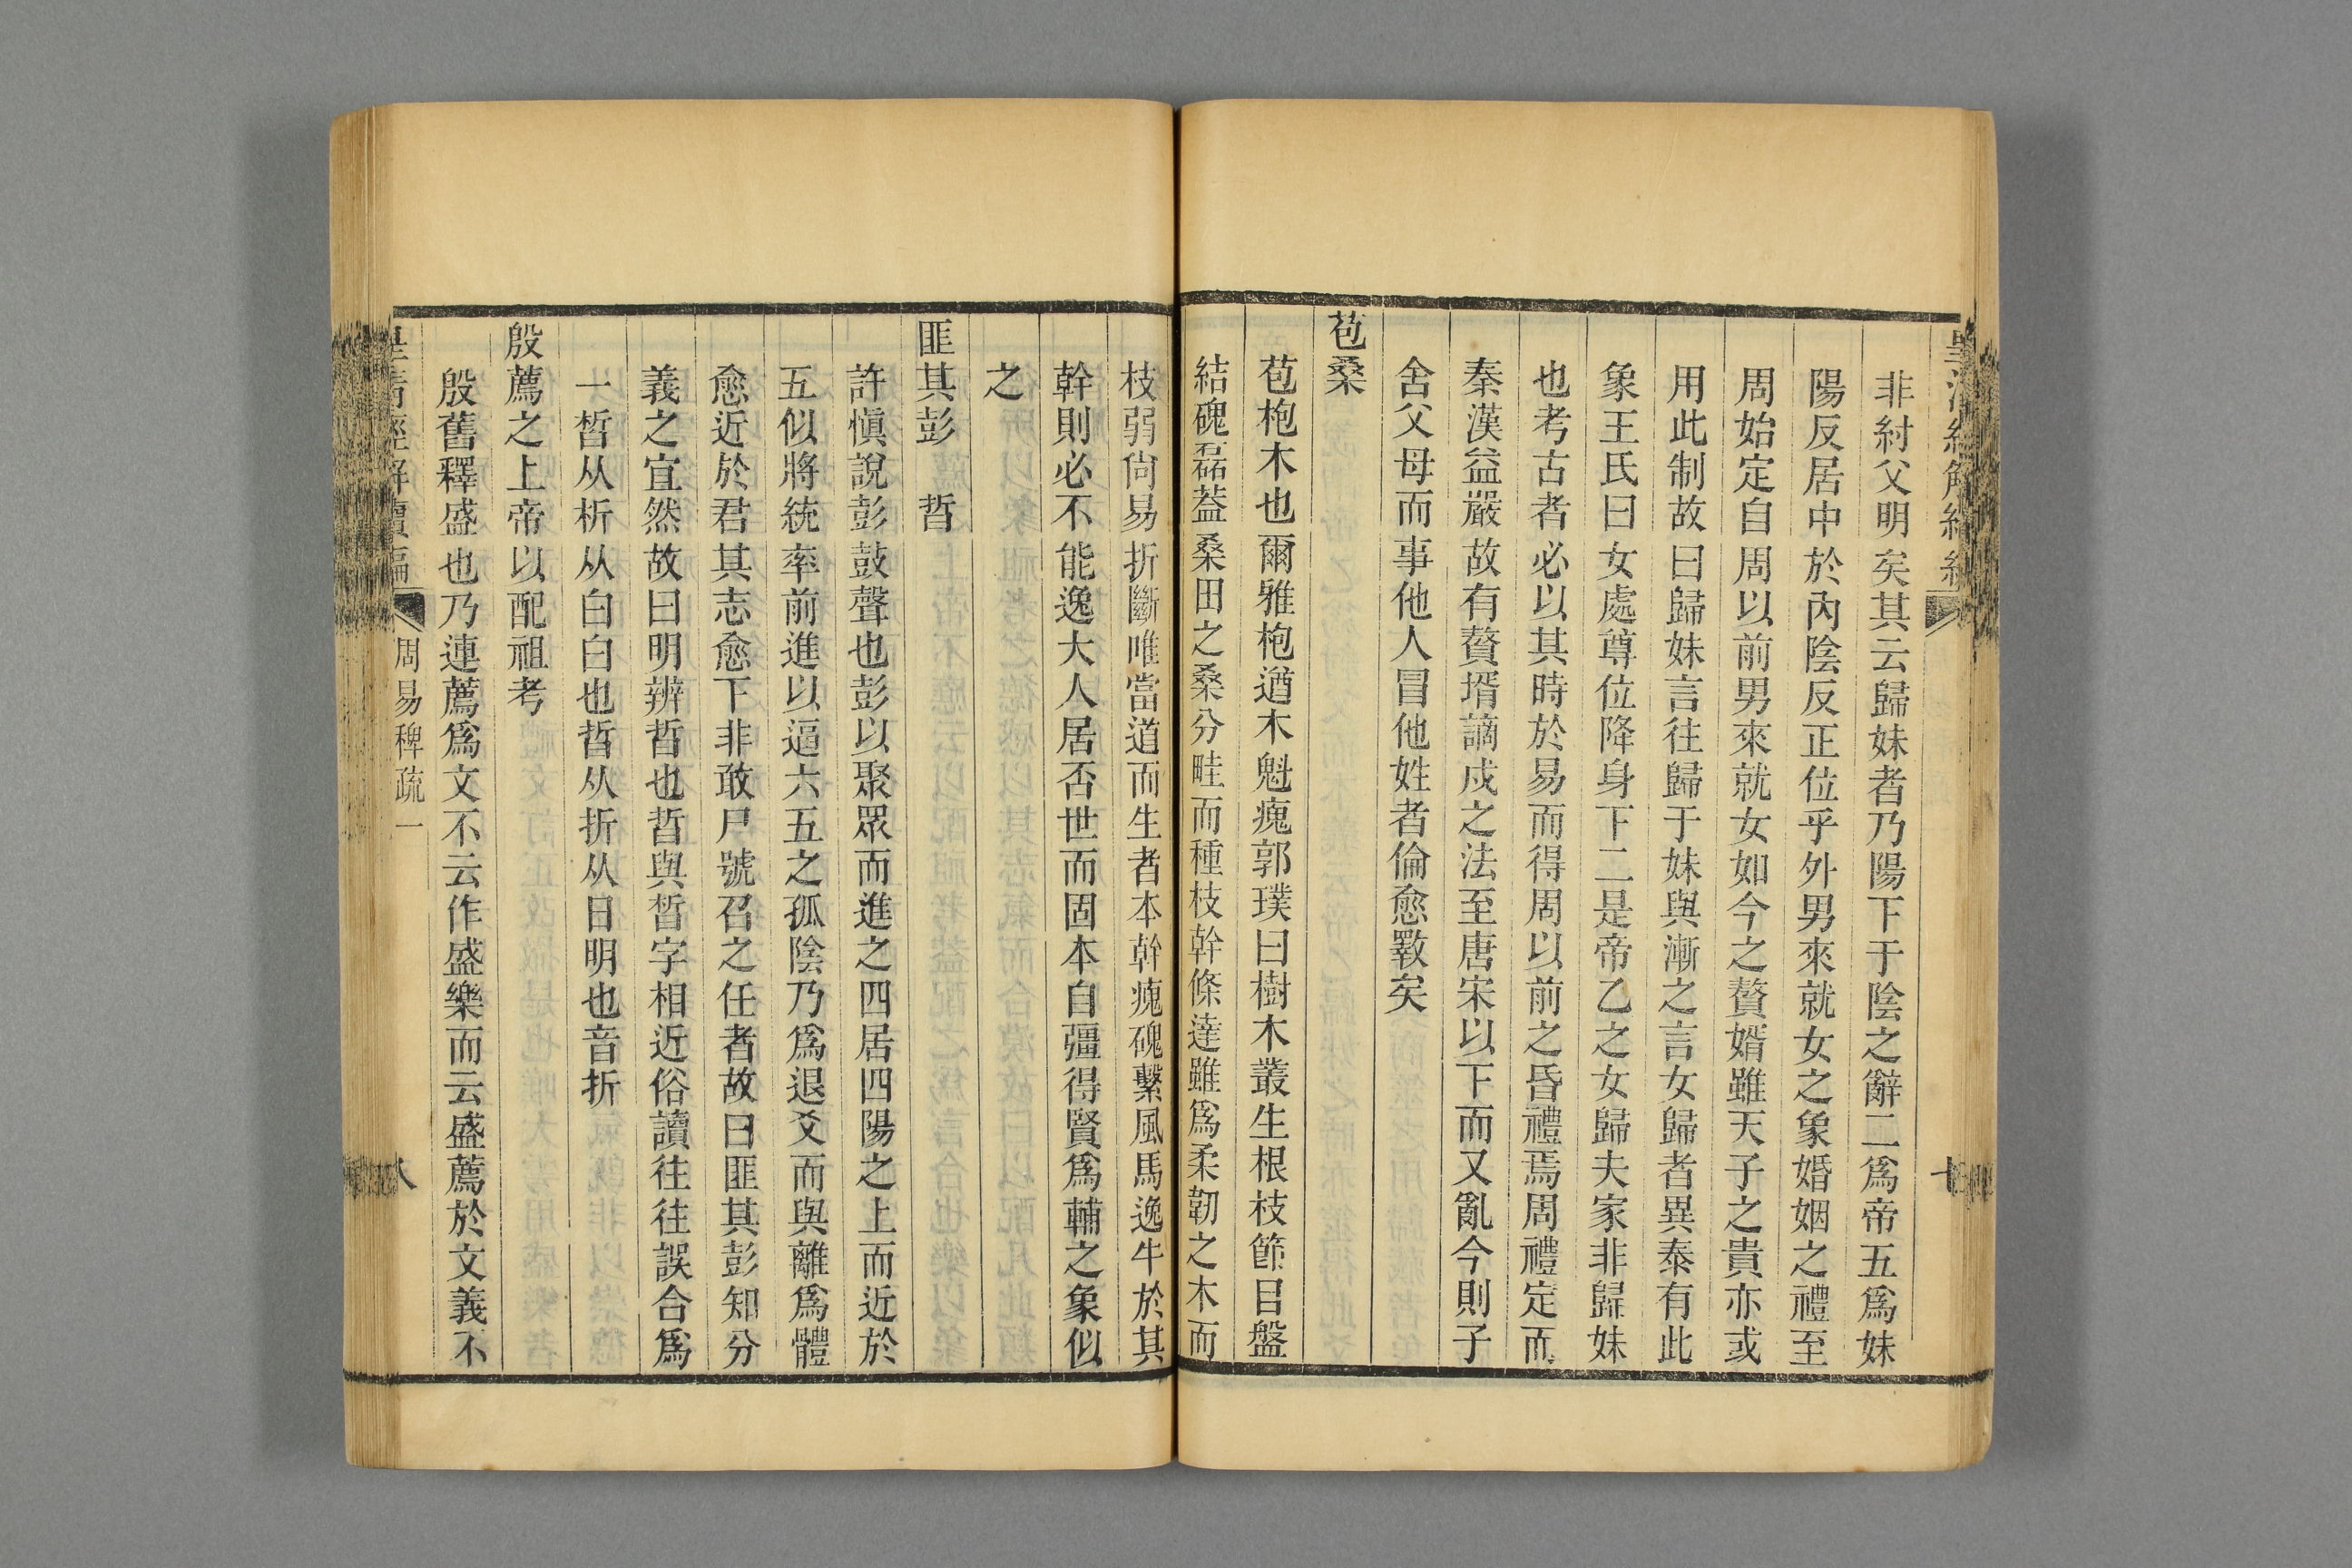 非紂父明矣其云歸妹者乃陽下于陰之辭二爲帝五爲妹
陽反居中於內陰反正位乎外男來就女之象婚姻之禮至
周始定自周以前男來就女如今之贅婿雖天子之貴亦或
用此制故曰歸妹言往歸于妹與漸之言女歸者異泰有此
象王氏曰女處尊位降身下二是帝乙之女歸夫家非歸妹
也考古者必以其時於易而得周以前之昏禮焉周禮定而
秦漢益嚴故有贅壻謫戍之法至唐宋以下而又亂今則子
舍父母而事他人冒他姓者倫愈斁矣
苞桑
苞枹木也爾雅枹遒木魁瘣郭璞曰樹木叢生根枝節目盤
結磈磊葢桑田之桑分畦而種枝幹條達雖爲柔韌之木而
枝弱尙易折斷唯當道而生者本幹瘣磈繫風馬逸牛於其
幹則必不能逸大人居否世而固本自彊得賢爲輔之象似
之
匪其彭 晢
許愼說彭鼓聲也彭以聚眾而進之四居四陽之上而近於
五似將統率前進以逼六五之孤陰乃爲退爻而與離爲體
愈近於君其志愈下非敢尸號召之任者故曰匪其彭知分
義之宜然故曰明辨晢也晢與皙字相近俗讀往往誤合爲
一皙从析从白白也晢从折从日明也音折
殷薦之上帝以配祖考
殷舊釋盛也乃連薦爲文不云作盛樂而云盛薦於文義不
周易稗疏一
八